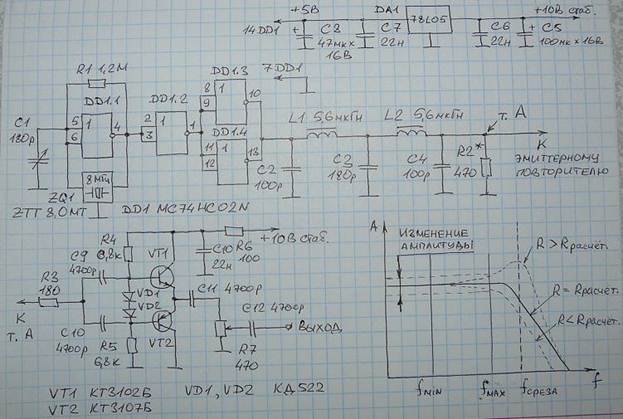 +5В
DA1
+10В стаб.
14DD1
+
C8
47мк×
16В
C7
22н
78L05
C6
22н
+
C5
100мк×16В
R1 1,2М
DD1.1
DD1.2
DD1.3
7DD1
8
9
1
10
C1
180р
5
6
1
4
2
3
1
1
DD1.4
11
12
1
13
L1 5,6мкГн
L2 5,6мкГн
т. А
К
ЭМИТТЕРНОМУ
ПОВТОРИТЕЛЮ
C2
100р
C3
180р
C4
100р
R2*
470
8МГц
ZQ1
ZTT 8,0МТ
DD1 MC74HC02N
R4
6,8к
VT1
+10В стаб.
C10
22н
R6
100
C9
4700р
R3
180
К
т. А
VD1
VD2
C11 4700р
C12 4700р
ВЫХОД
C10
4700р
R5
6,8к
VT2
R7
470
VT1 КТ3102Б
VD1, VD2 КД522
VT2 КТ3107Б
А
ИЗМЕНЕНИЕ
АМПЛИТУДЫ
R > Rрасчёт.
R = Rрасчёт.
R < Rрасчёт.
fMIN
fMAX
fСРЕЗА
f